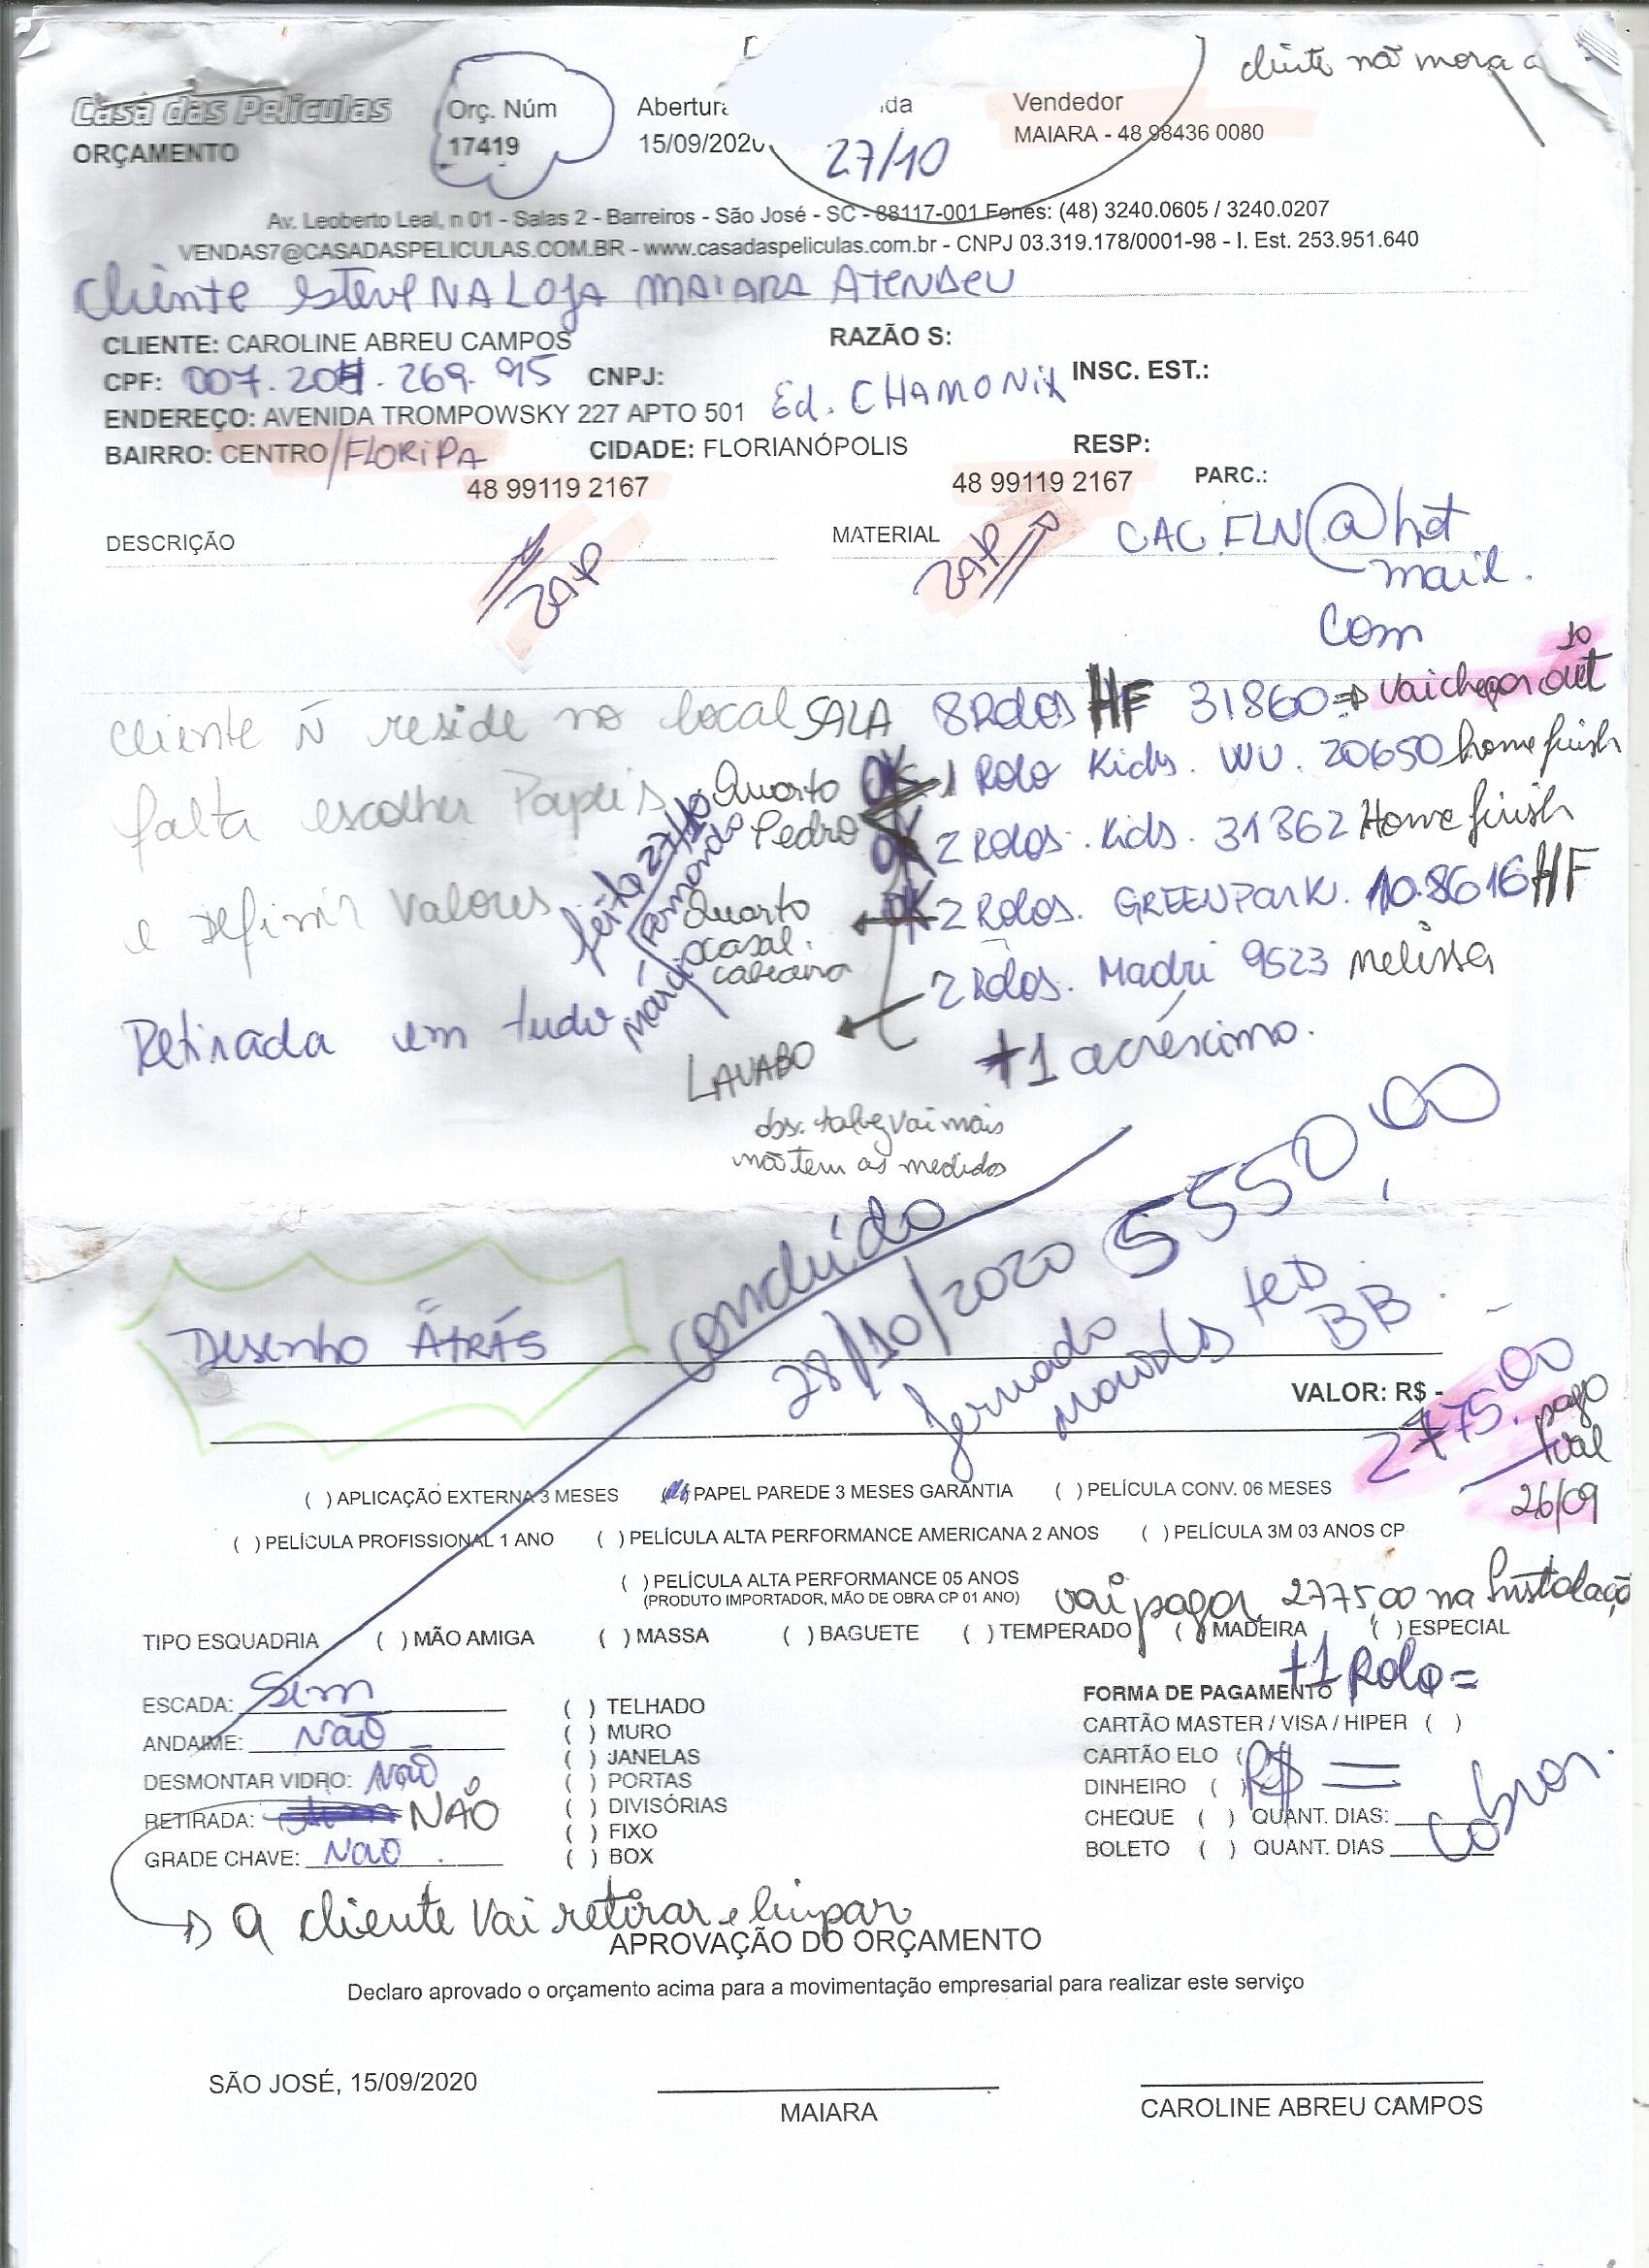 cliente não mora
Casa das Películas
ORÇAMENTO
Orç. Núm
17419
Abertura
15/09/2020
27/10
Vendedor
MAIARA - 48 98436 0080
Av. Leoberto Leal, n 01 - Salas 2 - Barreiros - São José - SC - 88117-001 Fones: (48) 3240.0605 / 3240.0207
VENDAS7@CASADASPELICULAS.COM.BR - www.casadaspeliculas.com.br - CNPJ 03.319.178/0001-98 - I. Est. 253.951.640
Cliente esteve NA LOJA MAIARA ATENDEU
CLIENTE: CAROLINE ABREU CAMPOS RAZÃO S:
CPF: 007.204.269.95 CNPJ: INSC. EST.:
ENDEREÇO: AVENIDA TROMPOWSKY 227 APTO 501 Ed. CHAMONIX
BAIRRO: CENTRO/FLORIPA CIDADE: FLORIANÓPOLIS RESP:
48 99119 2167 48 99119 2167 PARC.:
DESCRIÇÃO MATERIAL
zap zap
CAC.FLN@hot
mail.
com
10
cliente ñ reside no local SALA 8 Rolos HF 31860 => Vai chegar out
falta escolher Papéis Quarto Pedro OK 1 Rolo Kids. WU. 20650 home finish
OK 2 Rolos. Kids. 31862 Home finish
e Definir valores Quarto casal. cabeceira OK 2 Rolos. GREENPARK. 10.8616 HF
feito 27/10
Fernando
márcio
2 Rolos. Madri 9523 melissa
Retirada em tudo
LAVABO +1 acréscimo.
obs: talvez vai mais
não tem as medidas
Desenho ATRÁS
concluído
28/10/2020
5550,00
ted
BB.
VALOR: R$ -
2775,00 pago
26/09
( ) APLICAÇÃO EXTERNA 3 MESES ( ) PAPEL PAREDE 3 MESES GARANTIA ( ) PELÍCULA CONV. 06 MESES
( ) PELÍCULA PROFISSIONAL 1 ANO ( ) PELÍCULA ALTA PERFORMANCE AMERICANA 2 ANOS ( ) PELÍCULA 3M 03 ANOS CP
( ) PELÍCULA ALTA PERFORMANCE 05 ANOS
(PRODUTO IMPORTADOR, MÃO DE OBRA CP 01 ANO)
vai pagar 2775,00 na Instalação
TIPO ESQUADRIA ( ) MÃO AMIGA ( ) MASSA ( ) BAGUETE ( ) TEMPERADO ( ) MADEIRA ( ) ESPECIAL
+1 Rolo =
ESCADA: Sim
ANDAIME: NÃO
DESMONTAR VIDRO: NÃO
RETIRADA: NÃO
GRADE CHAVE: NÃO
( ) TELHADO
( ) MURO
( ) JANELAS
( ) PORTAS
( ) DIVISÓRIAS
( ) FIXO
( ) BOX
FORMA DE PAGAMENTO
CARTÃO MASTER / VISA / HIPER ( )
CARTÃO ELO (
DINHEIRO ( ) R$ =
CHEQUE ( ) QUANT. DIAS:
BOLETO ( ) QUANT. DIAS
Cobrar.
a cliente vai retirar e limpar
APROVAÇÃO DO ORÇAMENTO
Declaro aprovado o orçamento acima para a movimentação empresarial para realizar este serviço
SÃO JOSÉ, 15/09/2020
MAIARA
CAROLINE ABREU CAMPOS